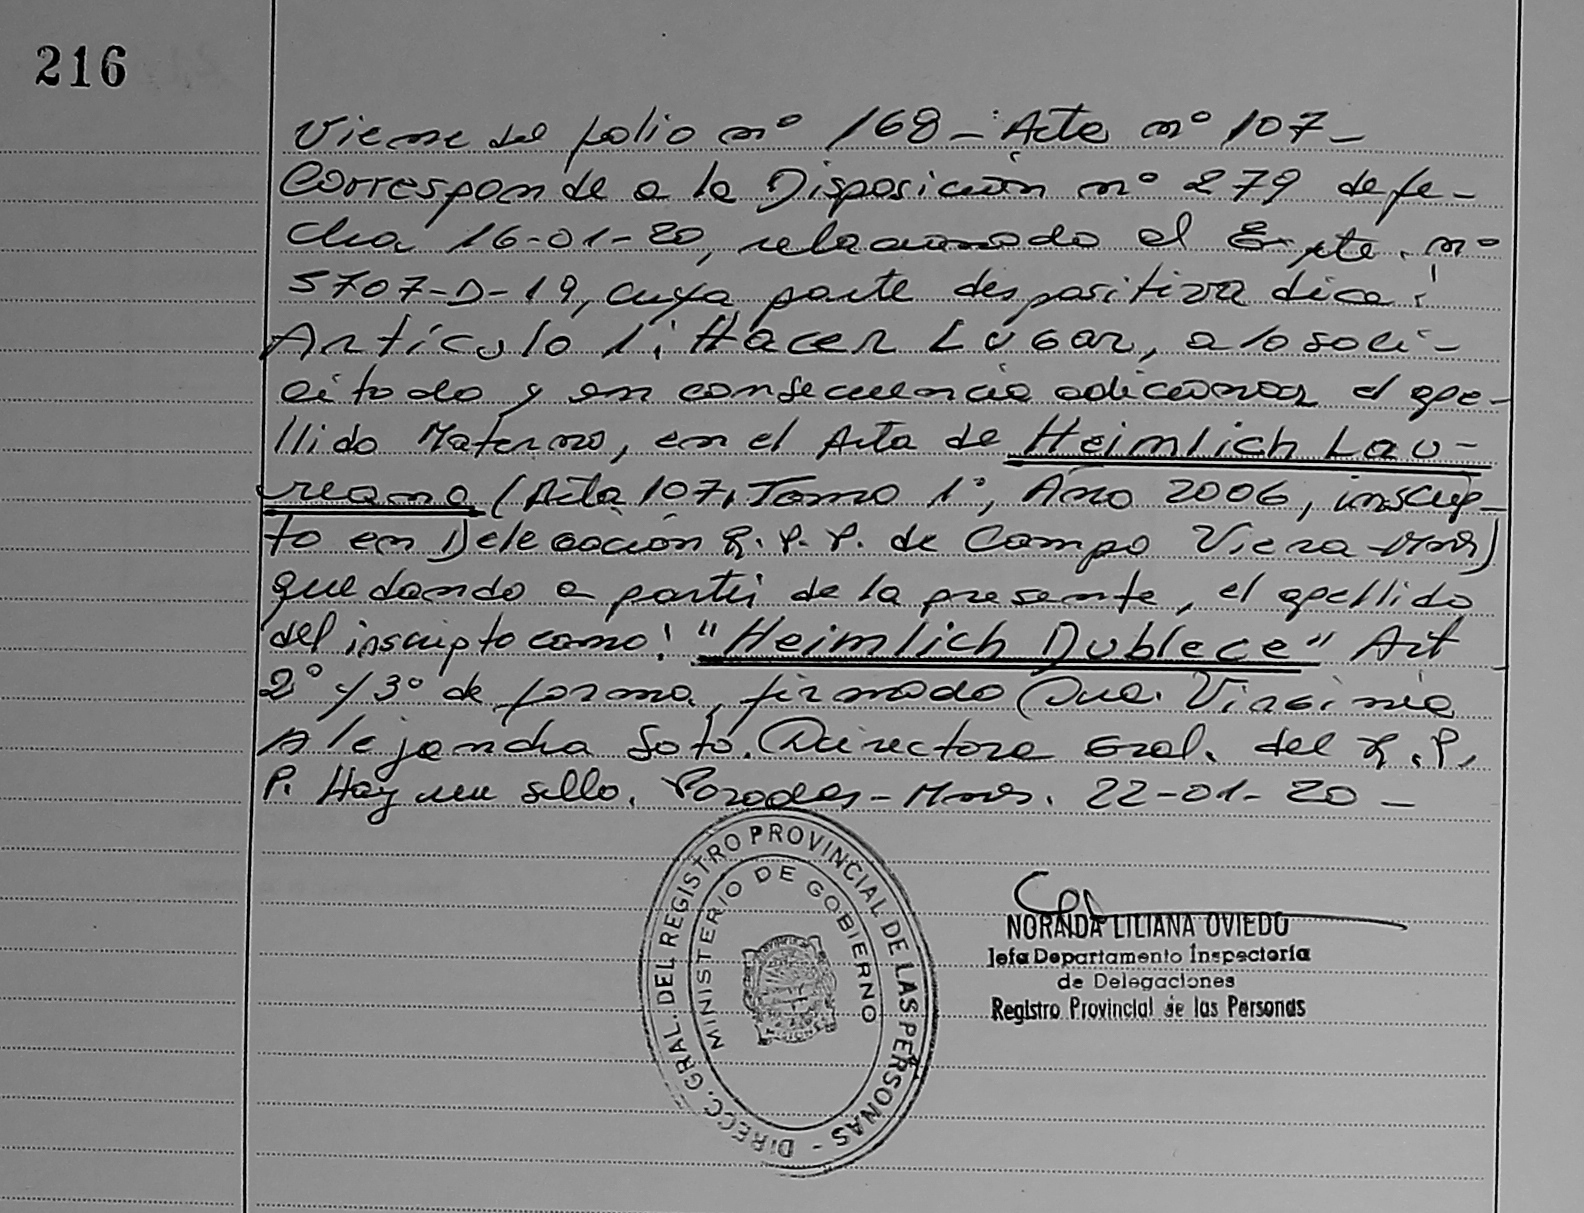 216
Viene del folio nº 168 - Acta nº 107 -
Corresponde a la Disposición nº 279 de fe-
cha 16-01-20, relacionado al Expte. nº
5707-D-19, cuya parte dispositiva dice:
Artículo 1: Hacer Lugar, a lo soli-
citado y en consecuencia adicionar el ape-
llido Materno, en el Acta de Heimlich Lau-
reano (Acta 107, Tomo 1º, Año 2006, inscrip-
to en Delegación R.P.P. de Campo Viera - Mnes)
quedando a partir de la presente, el apellido
del inscripto como: "Heimlich Dublece" Art
2º y 3º de forma, firmado Dra. Virginia
Alejandra Soto. Directora Gral. del R.P.
P. Hay un sello. Posadas - Mnes. 22-01-20 -
DIRECC. GRAL. DEL REGISTRO PROVINCIAL DE LAS PERSONAS -
MINISTERIO DE GOBIERNO
NORAIDA LILIANA OVIEDO
Jefa Departamento Inspectoría
de Delegaciones
Registro Provincial de las Personas